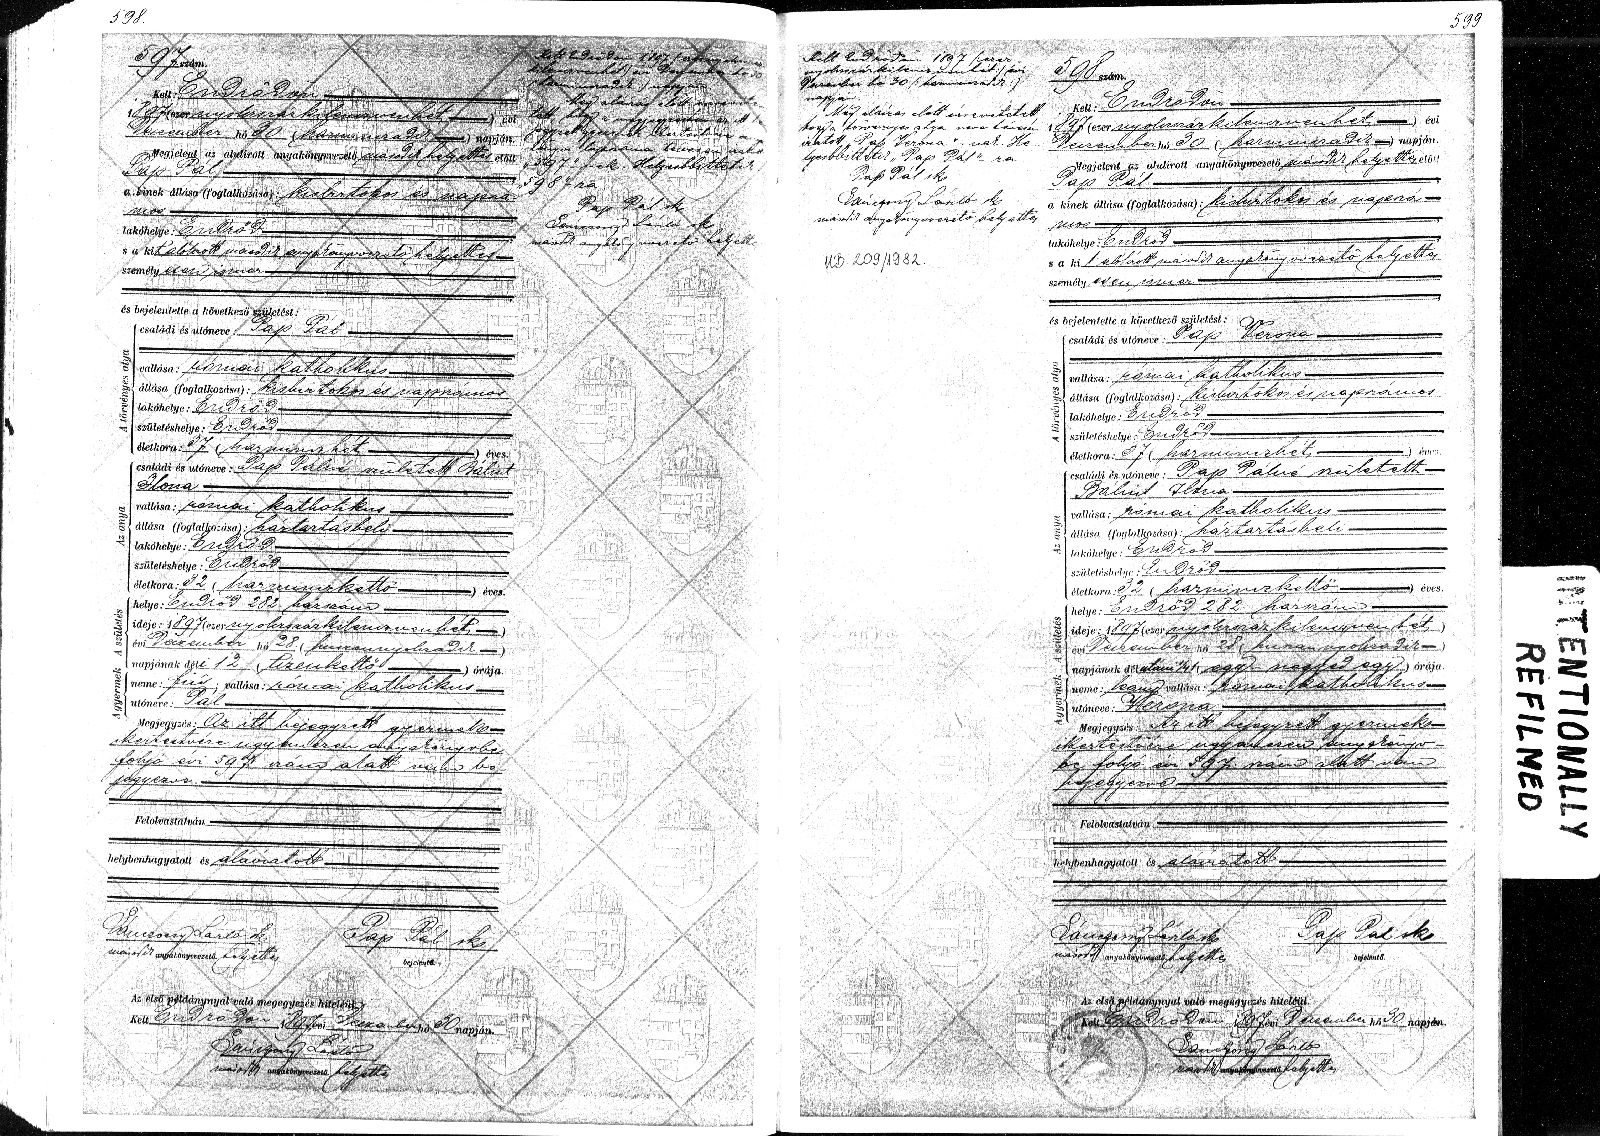 598.
597 szám.
Kelt: Endrődön
1897 (ezer nyolcszázkilencvenhét) évi
December hó 30 (harmincadik) napján.
Megjelent az alulirott anyakönyvvezető második helyettes előtt
Pap Pál
a kinek állása (foglalkozása): kisbirtokos és napszá
mos
lakóhelye: Endrőd
s a kit alulirott második anyakönyvvezető helyettes
személyesen ismer
és bejelentette a következő születést:
A törvényes atya
családi és utóneve: Pap Pál
vallása: római katholikus
állása (foglalkozása): kisbirtokos és napszámos
lakóhelye: Endrőd
születéshelye: Endrőd
életkora: 37 (harminczhét) éves.
Az anya
családi és utóneve: Pap Pálné született Bálint
Ilona
vallása: római katholikus
állása (foglalkozása): háztartásbeli
lakóhelye: Endrőd
születéshelye: Endrőd
életkora: 32 (harminczkettő) éves.
A születés
helye: Endrőd 282. házszám
ideje: 1897 (ezer nyolcszázkilencvenhét)
évi December hó 28. (huszonnyolcadik)
napjának déli 12 (tizenkettő) órája.
A gyermek
neme: fiú; vallása: római katholikus
utóneve: Pál
Megjegyzés: Az itt bejegyzett gyermek
ikertestvére ugyanezen anyakönyvbe
folyó évi 598 szám alatt van be
jegyezve.
Felolvastatván
helybenhagyatott és aláiratott
László sk
Pap Pál sk
második anyakönyvvezető helyettes
bejelentő.
Az első példánynyal való megegyezés hiteléül.
Kelt Endrődön 1897 évi December hó 30 napján.
László
második anyakönyvvezető helyettes
Kelt Endrődön 1897
December hó 30
5987 ra
Pap Pál sk
László sk
második anyakönyvvezető helyettes
599
Kelt Endrődön 1897 (ezer
nyolcszázkilencvenhét) évi
December hó 30 (harmincadik)
napján.
Alig aláirás előtt
hogy a törvényes atya neve
iratott "Pap Verona"
"Pap Pál" ra
Pap Pál sk
László sk
második anyakönyvvezető helyettes
UD 209/1982.
598 szám.
Kelt: Endrődön
1897 (ezer nyolcszázkilencvenhét) évi
December hó 30. (harmincadik) napján.
Megjelent az alulirott anyakönyvvezető második helyettes előtt
Pap Pál
a kinek állása (foglalkozása): kisbirtokos és napszá
mos
lakóhelye: Endrőd
s a kit alulirott második anyakönyvvezető helyettes
személyesen ismer
és bejelentette a következő születést:
A törvényes atya
családi és utóneve: Pap Verona
vallása: római katholikus
állása (foglalkozása): kisbirtokos és napszámos
lakóhelye: Endrőd
születéshelye: Endrőd
életkora: 37 (harminczhét) éves.
Az anya
családi és utóneve: Pap Pálné született
Bálint Ilona
vallása: római katholikus
állása (foglalkozása): háztartásbeli
lakóhelye: Endrőd
születéshelye: Endrőd
életkora: 32 (harminczkettő) éves.
A születés
helye: Endrőd 282. házszám
ideje: 1897 (ezer nyolcszázkilencvenhét)
évi December hó 28 (huszonnyolcadik)
napjának délutáni ¼1 (egy negyed egy) órája.
A gyermek
neme: leány vallása: római katholikus
utóneve: Verona
Megjegyzés: Az itt bejegyzett gyermek
ikertestvére ugyanezen anyakönyv
be folyó évi 597. szám alatt van
bejegyezve
Felolvastatván
helybenhagyatott és aláiratott
László sk
Pap Pál sk
második anyakönyvvezető helyettes
bejelentő.
Az első példánynyal való megegyezés hiteléül.
Kelt Endrődön 1897 évi December hó 30 napján.
László
második anyakönyvvezető helyettes
INTENTIONALLY
REFILMED